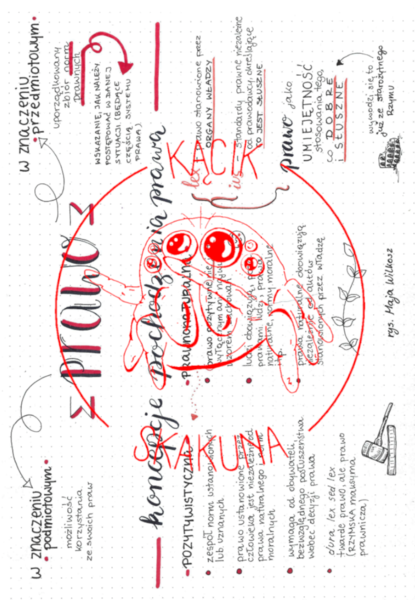 w znaczeniu
podmiotowym
możliwość
korzystania
ze swoich praw
PRAWO
w znaczeniu
przedmiotowym
uporządkowany
zbiór norm
prawnych
WSKAZANIE, JAK NALEŻY
POSTĘPOWAĆ W DANEJ
SYTUACJI (BĘDĄCE
CZĘŚCIĄ SYSTEMU
PRAWA)
koncepcje pochodzenia prawa
POZYTYWISTYCZNA
zespół norm ustanowionych
lub uznanych
prawo ustanowione przez
człowieka jest niezależne od
prawa naturalnego i norm
moralnych
wymaga od obywateli
bezwzględnego posłuszeństwa
wobec decyzji prawa
dura lex sed lex
twarde prawo, ale prawo
(RZYMSKA MAKSYMA
prawnicza)
PRAWNONATURALNA
prawo pozytywne
wzorem zachowań
ludzi obowiązują
prawami ludzi, prawa
naturalne, normy moralne
prawa naturalne obowiązują
niezależnie od aktów
stanowionych przez władzę
lex
prawo stanowione przez
ORGANY WŁADZY
ius
standardy prawne niezależne
od prawodawcy określające
CO JEST SŁUSZNE
prawo jako
UMIEJĘTNOŚĆ
stosowania tego,
co DOBRE
SŁUSZNE
wywodzi się to
już ze starożytnego
Rzymu
rys. Maja Wilkosz
KĄCIK
SKAKUNA